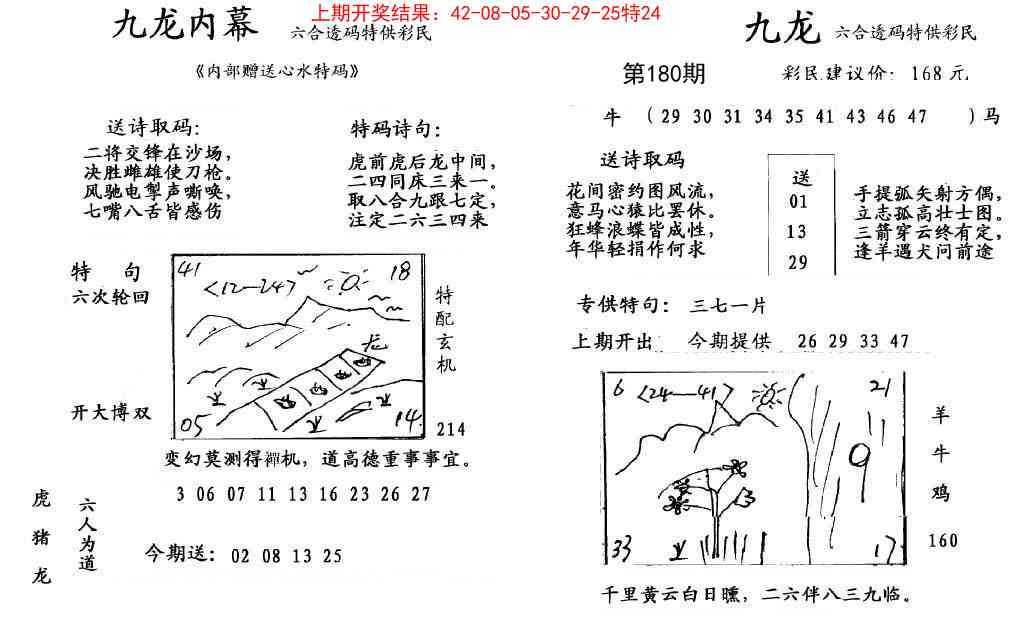 上期开奖结果：42-08-05-30-29-25特24
九龙内幕 六合透码特供彩民
《内部赠送心水特码》
送诗取码：
二将交锋在沙场，
决胜雌雄使刀枪。
风驰电掣声嘶唤，
七嘴八舌皆感伤
特码诗句：
虎前虎后龙中间，
二四同床三来一。
取八合九跟七定，
注定二六三四来
特 句
六次轮回
开大博双
41
18
<12-24>
龙
05
14
特配玄机
214
变幻莫测得禪机，道高德重事事宜。
3 06 07 11 13 16 23 26 27
虎
猪
龙
六人为道
今期送：02 08 13 25
九龙 六合透码特供彩民
第180期 彩民建议价：168元
牛 （29 30 31 34 35 41 43 46 47 ）马
送诗取码
花间密约图风流，
意马心猿比罢休。
狂蜂浪蝶皆成性，
年华轻捐作何求
送
01
13
29
手提弧矢射方偶，
立志孤高壮士图。
三箭穿云终有定，
逢羊遇犬问前途
专供特句：三七一片
上期开出: 今期提供 26 29 33 47
6
<24-41>
21
9
33
17
羊
牛
鸡
160
千里黄云白日曛，二六伴八三九临。